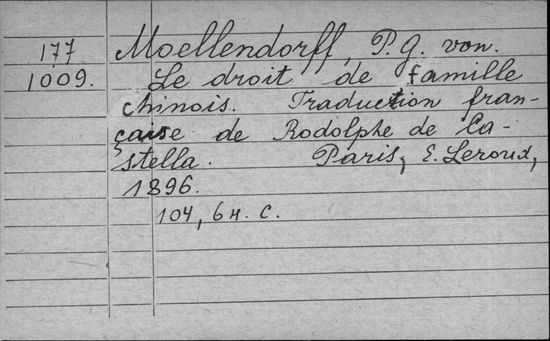 177 Moellendorff, P. G. von.
1009. Le droit de famille
chinois. Traduction fran-
çaise de Rodolphe de Ca-
stella. Paris, E. Leroux,
1896.
104, 6 н. с.